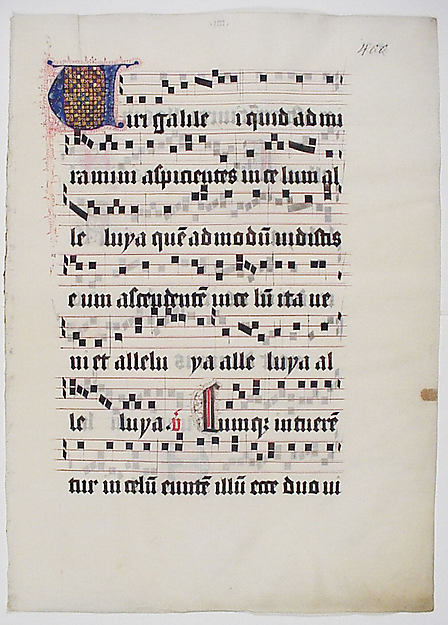 400
Viri galile i quid admi
ramini aspicientes in ce lum al
le luya quē ad modū uidistis
e um ascendentē in ce lū ita ue
ni et allelu ya alle luya al
le luya. v̄ Cumqz intuerē
tur in celū euntē illū ecce duo ui